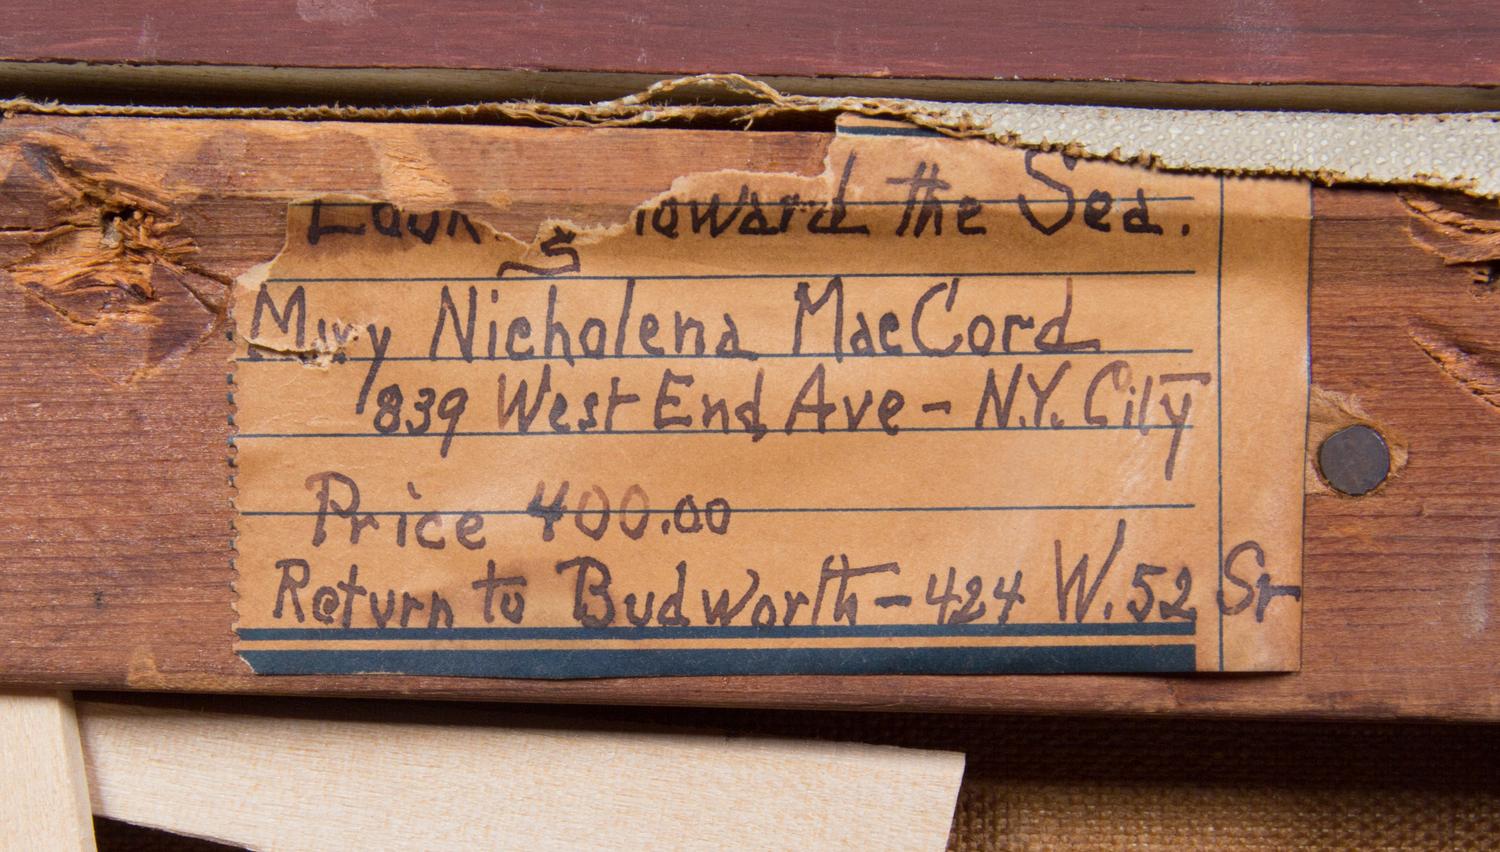 Look g Toward the Sea.
Mary Nicholena MacCord
839 West End Ave - N.Y. City
Price 400.00
Return to Budworth - 424 W. 52 St